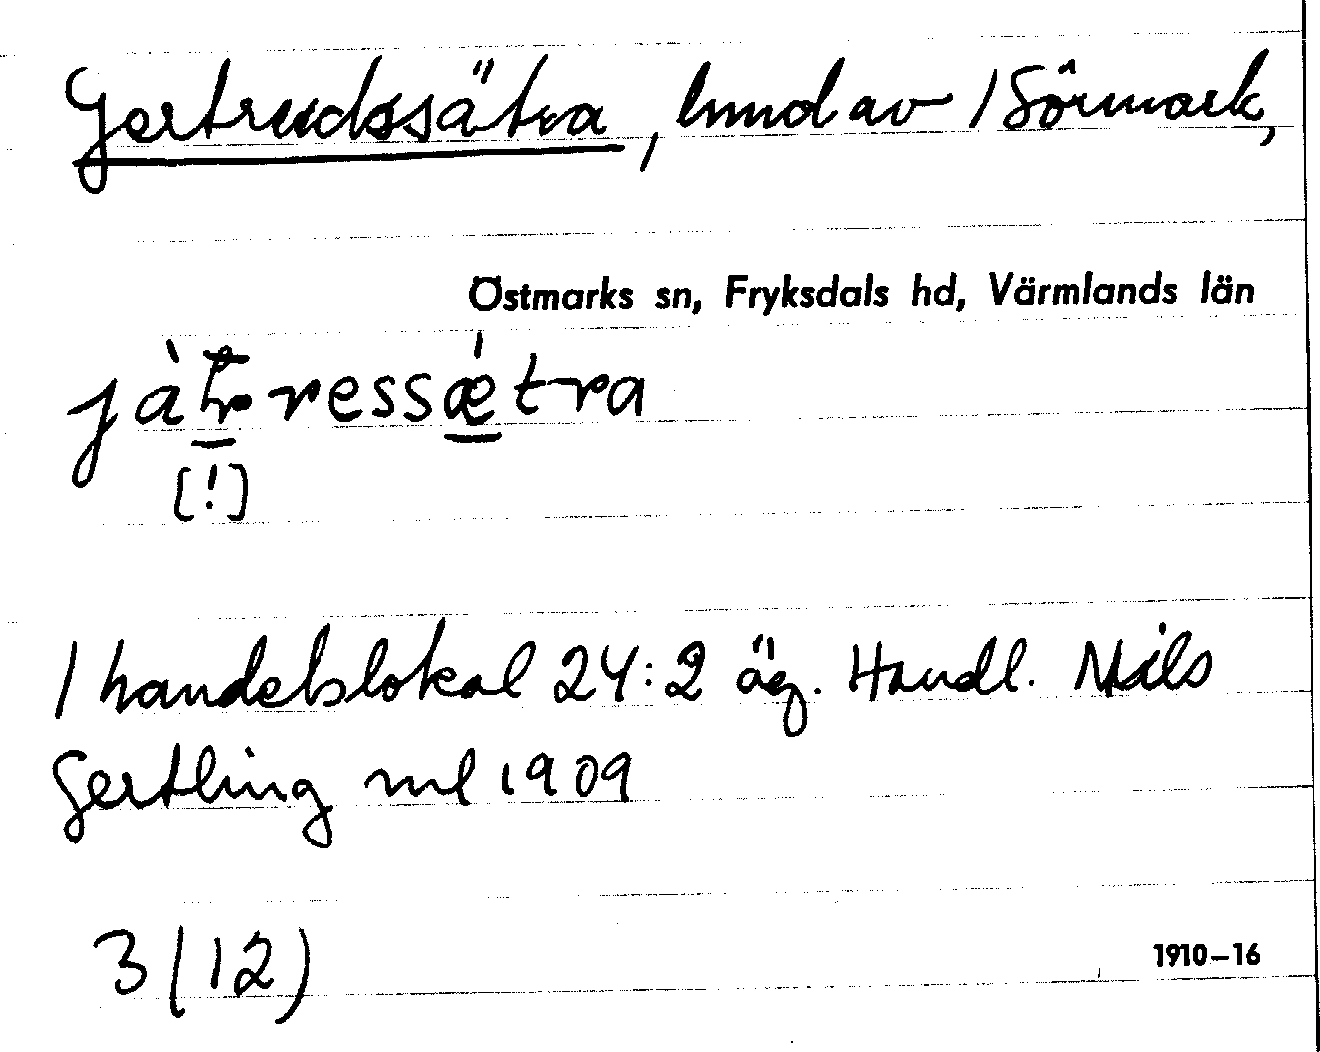 Gertrudssätra, hmd av 1 Sörmark,
Östmarks sn, Fryksdals hd, Värmlands län
[!]
1 handelslokal 24:2 äg. Handl. Nils
Gertling ml 1909
3 (12)
1910–16